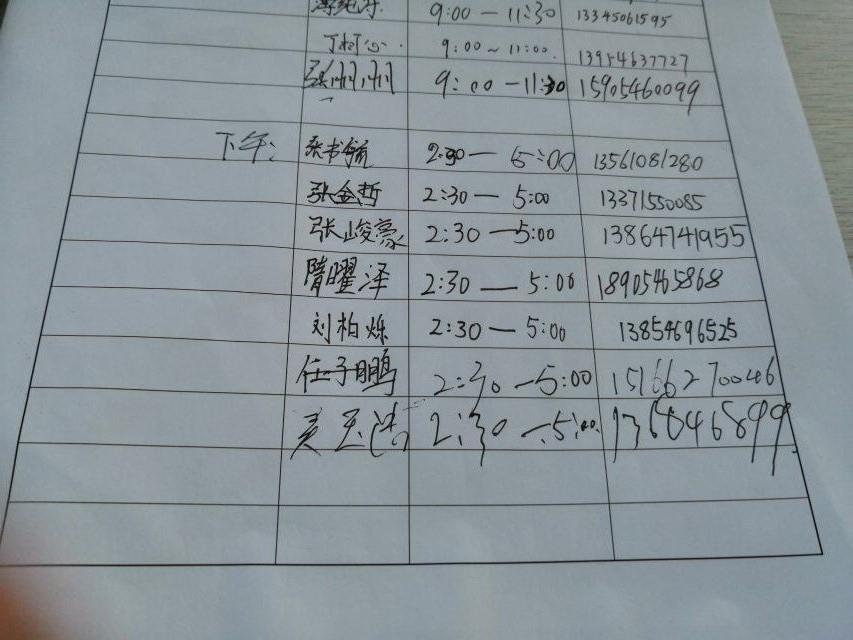 9:00 — 11:30 13345061595
丁柯心. 9:00 ~ 11:00. 13954637727
张州州 9:00 — 11:30 15905460099
下午: 张书毓 2:30 — 5:00 13561081280
张金哲 2:30 — 5:00 13371550085
张峻豪 2:30 — 5:00 13864741955
隋曜泽 2:30 — 5:00 18905465868
刘柏烁 2:30 — 5:00 13854696525
任子鹏 2:30 — 5:00 15166270046
2:30 — 5:00.